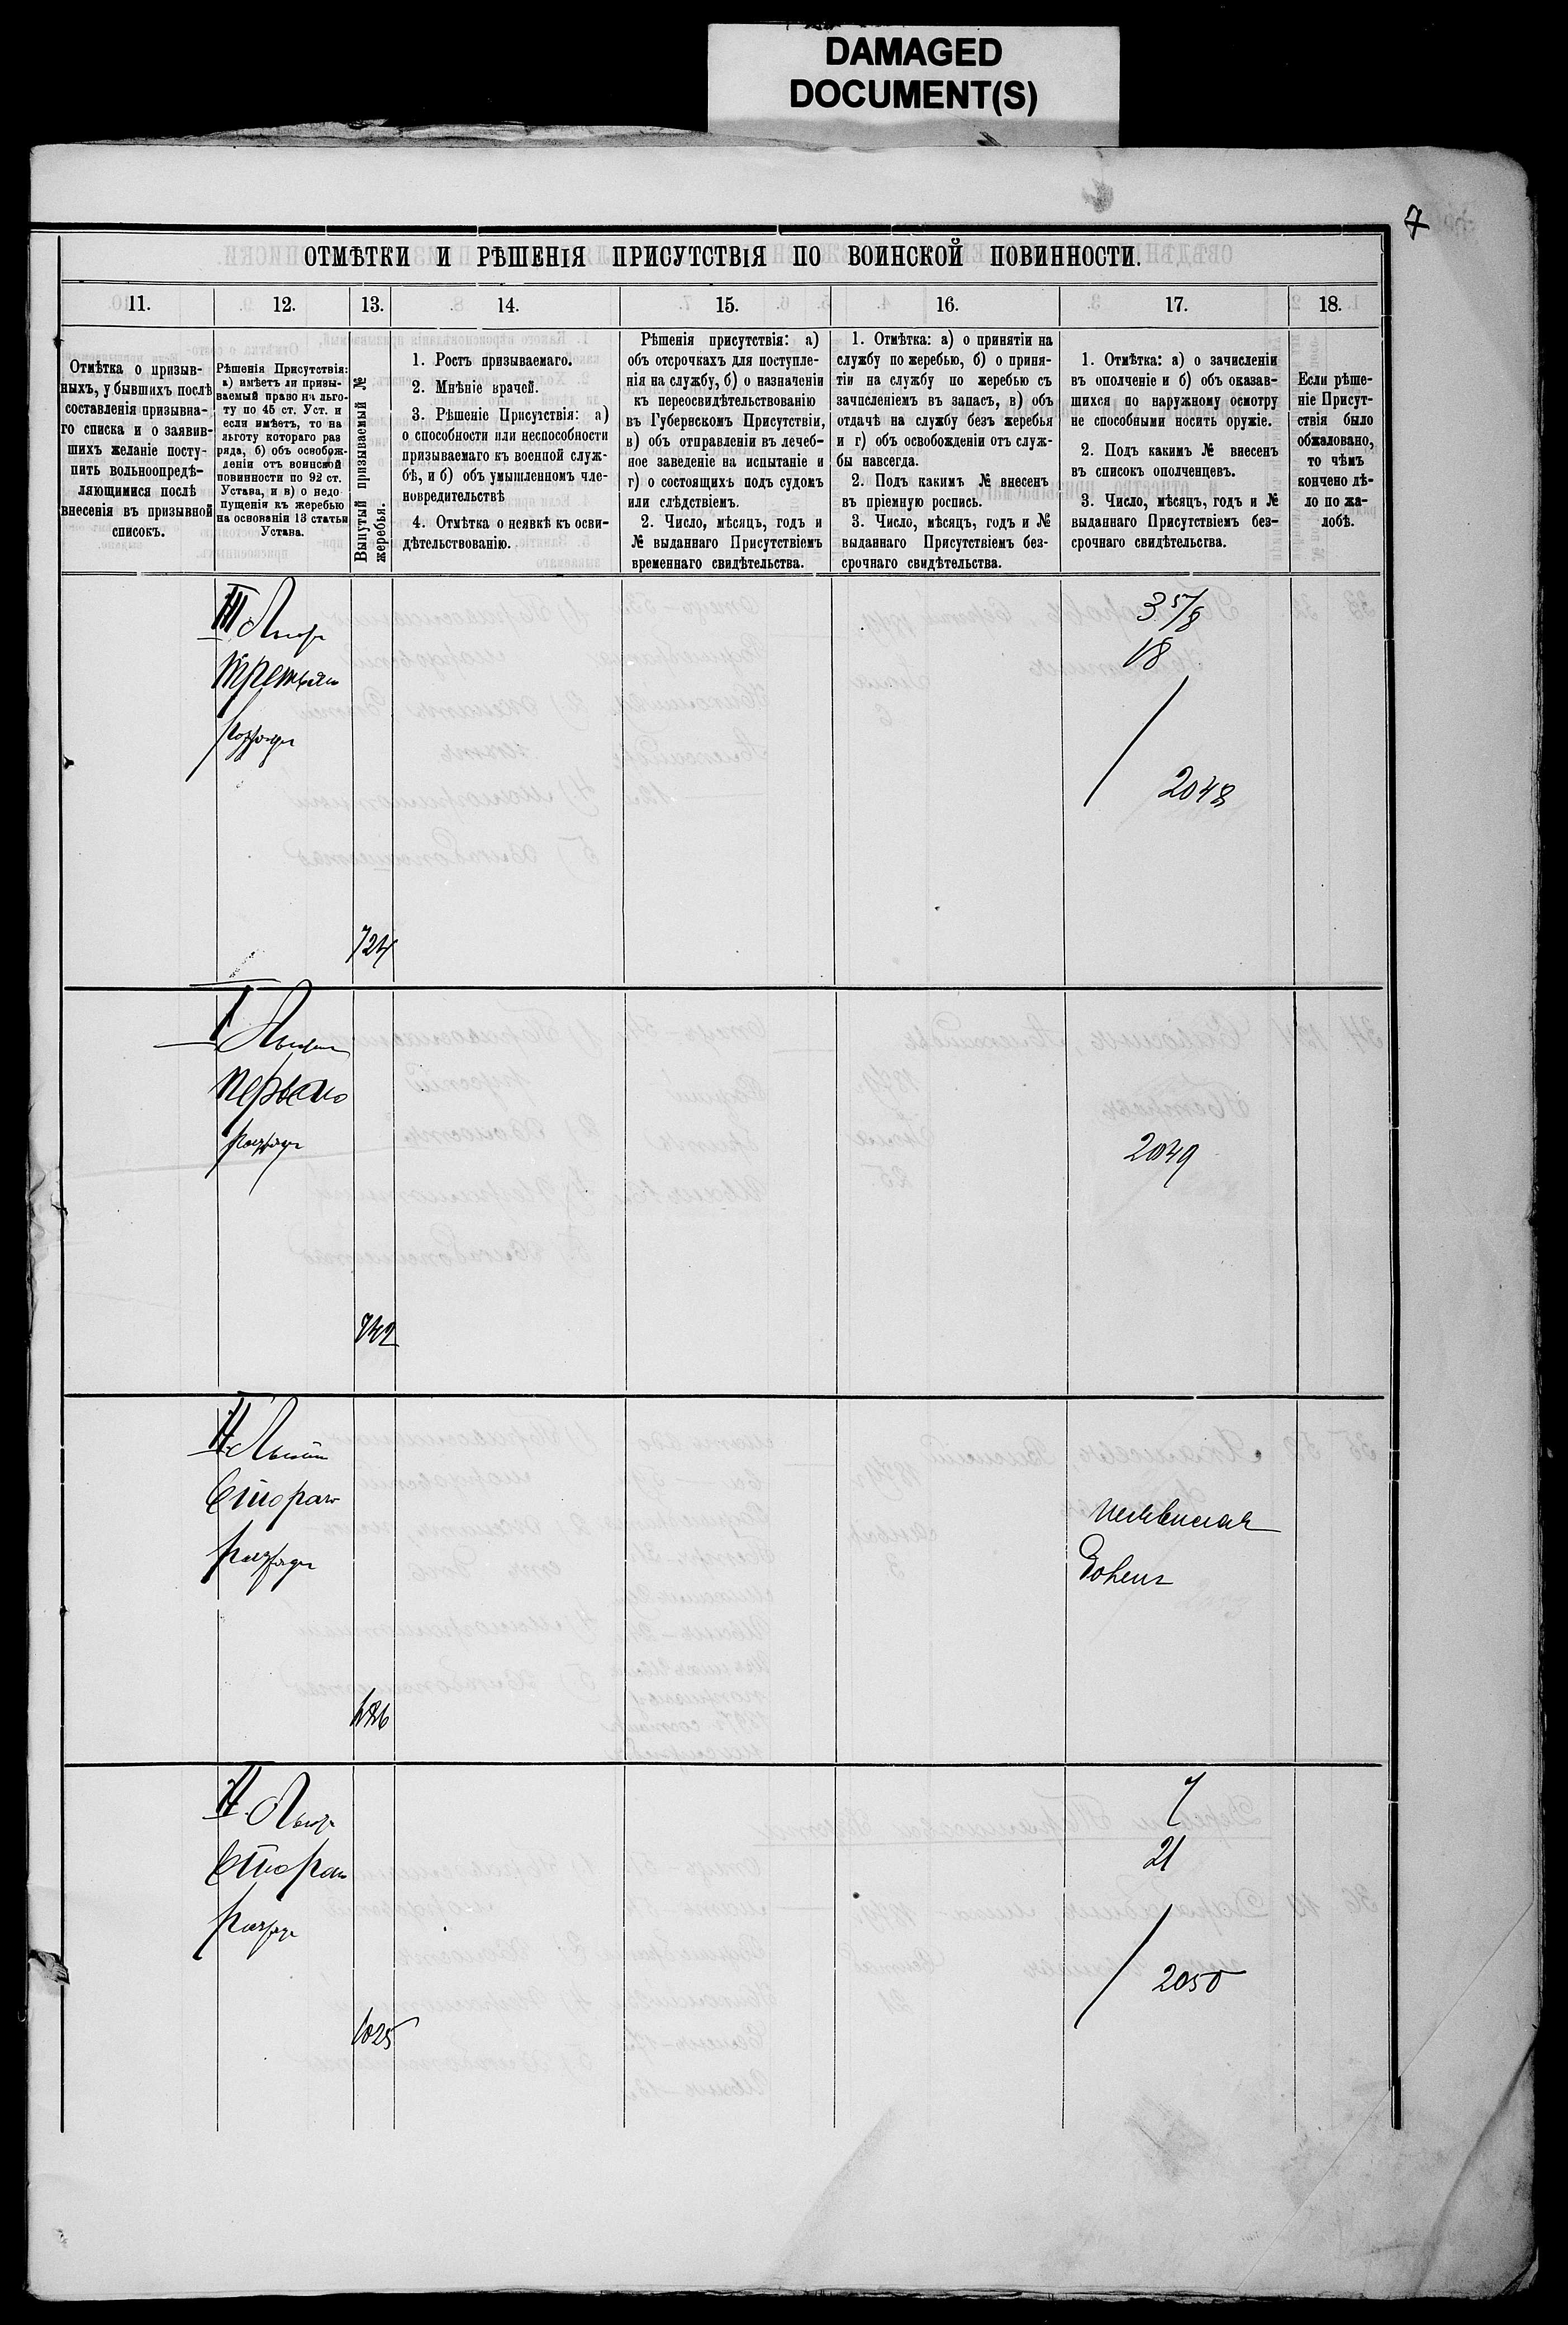 DAMAGED
DOCUMENT(S)
7
ОТМѢТКИ И РѢШЕНІЯ ПРИСУТСТВІЯ ПО ВОИНСКОЙ ПОВИННОСТИ.
11.
12.
13.
14.
15.
16.
17.
18.
Отмѣтка о призыв-
ныхъ, у бывшихъ послѣ
составленія призывна-
го списка и о заявив-
шихъ желаніе посту-
пить вольноопредѣ-
ляющимися послѣ
внесенія въ призывной
списокъ.
Рѣшенія Присутствія:
а) имѣетъ ли призы-
ваемый право на льго-
ту по 45 ст. Уст. и
если имѣетъ, то на
льготу котораго раз
ряда, б) объ освобож-
деніи отъ воинской
повинности по 92 ст.
Устава, и в) о недо
пущеніи къ жеребью
на основаніи 13 статьи
Устава.
Вынутый призываемый №
жеребья.
1. Ростъ призываемаго.
2. Мнѣніе врачей.
3. Рѣшеніе Присутствія: а)
о способности или неспособности
призываемаго къ военной служ-
бѣ, и б) объ умышленномъ чле-
новредительствѣ
4. Отмѣтка о неявкѣ къ осви-
дѣтельствованію.
Рѣшенія присутствія: а)
объ отсрочкахъ для поступле-
нія на службу, б) о назначеніи
къ переосвидѣтельствованію
въ Губернскомъ Присутствіи,
в) объ отправленіи въ лечеб-
ное заведеніе на испытаніе и
г) о состоящихъ подъ судомъ
или слѣдствіемъ.
2. Число, мѣсяцъ, годъ и
№ выданнаго Присутствіемъ
временнаго свидѣтельства.
1. Отмѣтка: а) о принятіи на
службу по жеребью, б) о приня-
тіи на службу по жеребью съ
зачисленіемъ въ запасъ, в) объ
отдачѣ на службу безъ жеребья
и г) объ освобожденіи отъ служ-
бы навсегда.
2. Подъ какимъ № внесенъ
въ пріемную роспись.
3. Число, мѣсяцъ, годъ и №
выданнаго Присутствіемъ без-
срочнаго свидѣтельства.
1. Отмѣтка: а) о зачисленіи
въ ополченіе и б) объ оказав-
шихся по наружному осмотру
не способными носить оружіе.
2. Подъ какимъ № внесенъ
въ списокъ ополченцевъ.
3. Число, мѣсяцъ, годъ и №
выданнаго Присутствіемъ без-
срочнаго свидѣтельства.
Если рѣше-
ніе Присут-
ствія было
обжаловано,
то чѣмъ
кончено дѣ-
ло по жа-
лобѣ.
III Льгота
третьяго
разряда
724
3 5/8
18
2048
I Льгота
перваго
разряда
742
2049
II Льгота
втораго
разряда
686
II Льгота
втораго
разряда
1025
7
21
2050